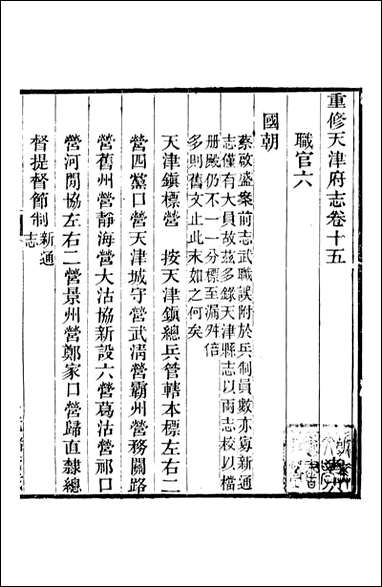 重修天津府志卷十五
職官六
國朝
蔡敬盛案前志武職誤附於兵制員數亦寡新通
志僅有大員故茲多錄天津縣志以兩志校以檔
册殿仍不一一分標至漏舛倍
多則舊文止此末如之何矣
天津鎭標營　按天津鎭總兵管轄本標左右二
營四黨口營天津城守營武清營霸州營務關路
營舊州營靜海營大沽協新設六營葛沽營祁口
營河間協左右二營景州營鄭家口營歸直隸總
督提督節制新通
志